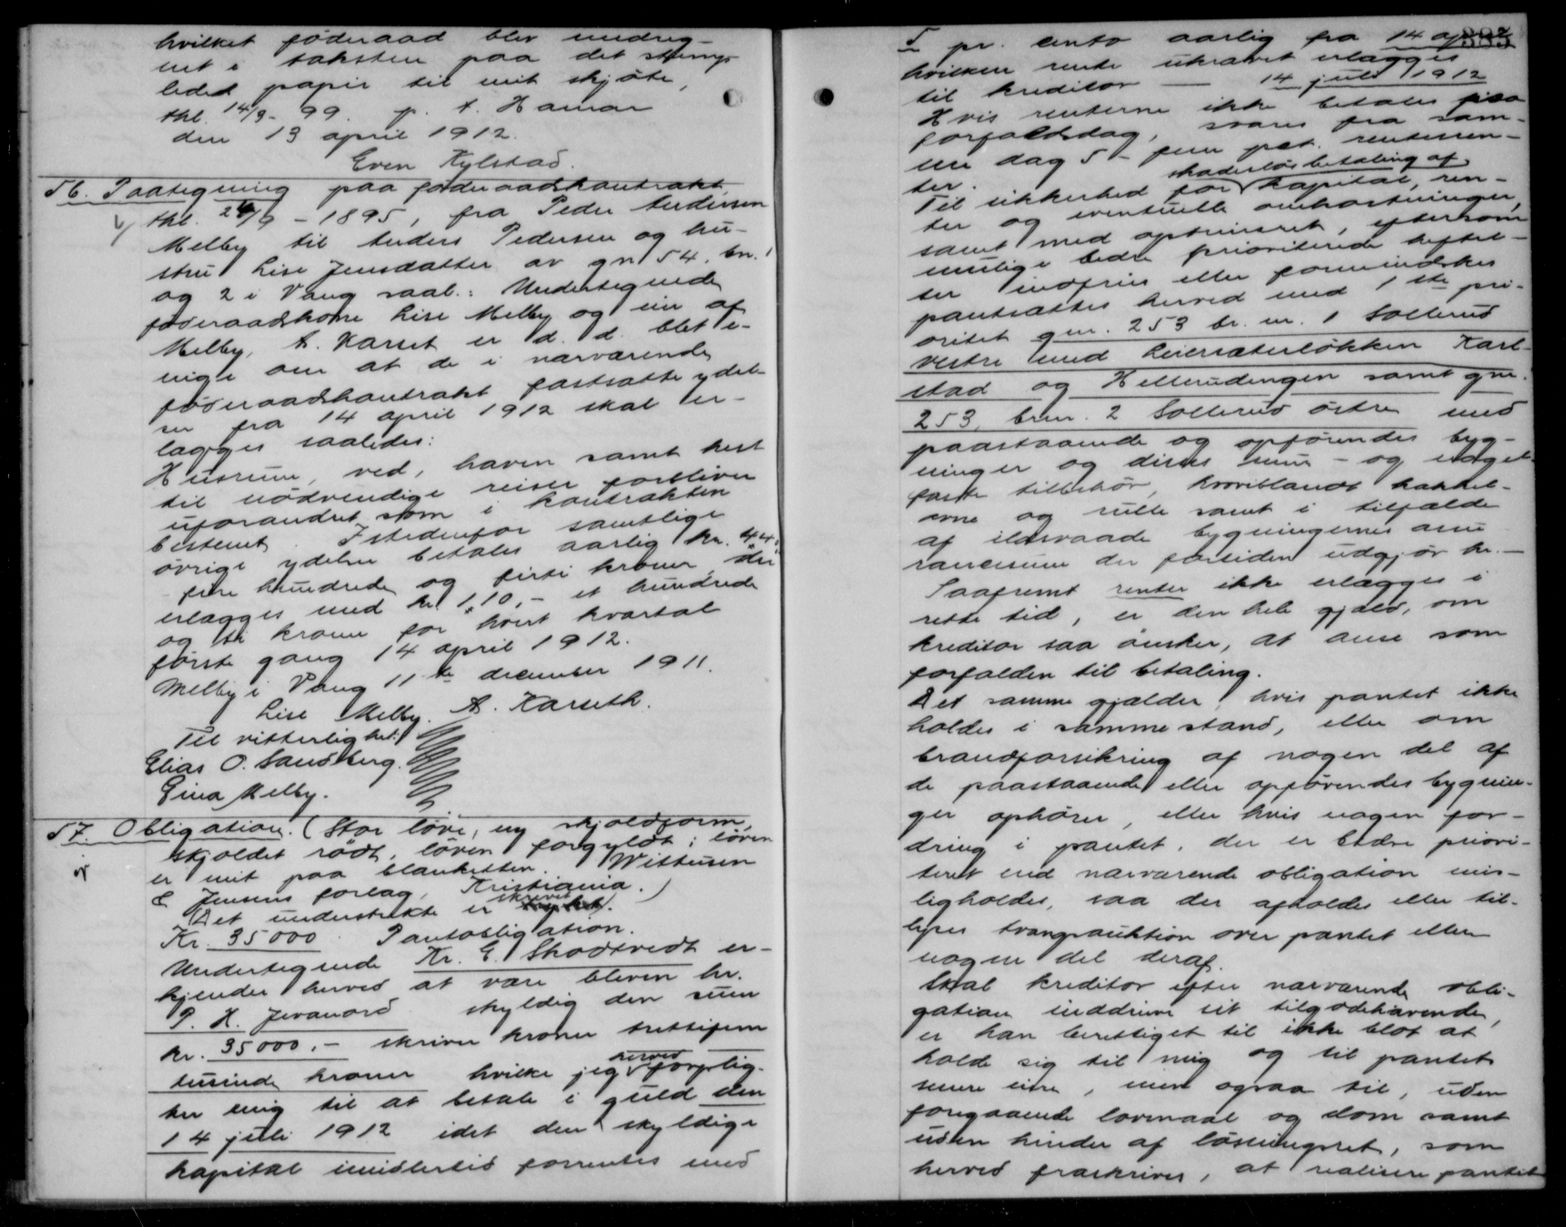 hvilket föderaad blev medreg-
net i taksten paa det stemp-
lede papir til mit skjöte,
thl. 14/9-99. p. t. Hamar
den 13 april 1912.
Even Kylstad.
56. Paategning paa föderaadskontrakt,
thl. 24/9-1895, fra Peder Andersen
Melby til Anders Pedersen og hu-
stru Lise Jensdatter av gn 54. bn. 1
og 2 i Vang saal.: Undertegnede
föderaadskone Lise Melby og eier af
Melby, A. Karset er d. d. blet e-
nige om at de i nærværende
föderaadskontrakt fastsatte ydel-
ser fra 14 april 1912 skal er-
lægges saaledes:
Husrum, ved, haven samt hest
til nödvendige reiser forbliver
uforandret som i kontrakten
bestemt. Istedenfor samtlige
övrige ydelser betales aarlig kr. 440,
fire hundrede og firti kroner, der
erlægges med kr. 110,- et hundrede
og ti kroner for hvert kvartal
förste gang 14 april 1912.
Melby i Vang 11te december 1911.
Lise Melby. A. Karseth.
Til vitterlighet:
Elias O. Sandberg.
Gina Melby.
57. Obligation. (Stor löve, ny skjoldform,
skjoldet rödt, löven forgyldt; löven
er mit paa blanketten. Wittusen
& Jensens forlag, Kristiania.)
(Det understrekte er skrevet).
Kr. 35000. Pantobligation.
Undertegnede Kr. G. Skodtvedt er-
kjender herved at være bleven hr.
P. H. Jevanord skyldig den sum
kr. 35000.- skriver kroner trettifem
tusinde kroner hvilke jeg herved forplig-
ter mig til at betale i guld den
14 juli 1912 idet den skyldige
kapital imidlertid forrentes med
5 pr. cento aarlig fra 14 april
hvilken rente ukrævet erlægges
til kreditor — 14 juli 1912
Hvis renterne ikke betales paa
forfaldsdag, svares fra sam-
me dag 5 - fem pct. rentesren-
ter.
Til sikkerhed for skadeslös betaling af kapital, ren-
ter og eventuelle omkostninger,
samt med opt­rinsret, eftersom
mulige bedre prioriterede heftel-
ser indfries eller formindskes
pantsættes herved med 1ste pri-
oritet gnr. 253 br. nr. 1 Sollerud
vestre med Leiersæterløkken Karl-
stad og Hellerudengen samt gnr.
253, brnr. 2 Sollerud östre med
paastaaende og opförendes byg-
ninger og disses mur- og nagel-
faste tilbehör, hvoriblandt kakkel-
ovne og rulle samt i tilfælde
af ildsvaade bygningernes assu-
rancesum der fortiden udgjör kr. —
Saafremt renter ikke erlægges i
rette tid, er den hele gjæld, om
kreditor saa önsker, at anse som
forfalden til betaling.
Det samme gjælder, hvis pantet ikke
holdes i samme stand, eller om
brandforsikring af nogen del af
de paastaaende eller opförendes bygnin-
ger ophörer, eller hvis nogen for-
dring i pantet, der er bedre priori-
teret end nærværende obligation mis-
ligholdes, saa der afholdes eller til-
lyses tvangsauktion over pantet eller
nogen del deraf.
Skal kreditor efter nærværende obli-
gation inddrive sit tilgodehavende,
er han berettiget til ikke blot at
holde sig til mig og til pantets
senere eiere, men ogsaa til, uden
foregaaende lovmaal og dom samt
uden hinder af lösningsret, som
herved fraskrives, at realisere pantet